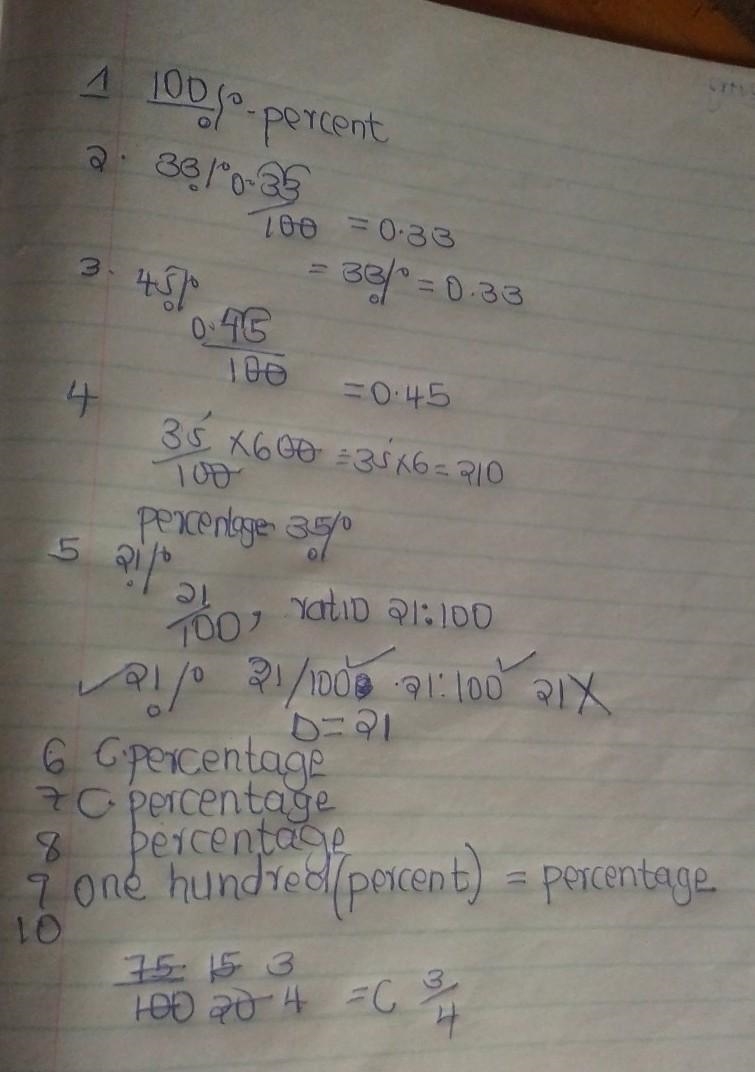 1 100% - percent
2. 33% 0.33
100 = 0.33
= 33% = 0.33
3. 45%
0.45
100 = 0.45
4
35/100 × 600 = 35×6 = 210
percentage 35%
5 21%
21/100, ratio 21:100
✓ 21% 21/100 ✓ 21:100 ✓ 21 X
D = 21
6 C. percentage
7 C. percentage
8 percentage
9 one hundred (percent) = percentage
10
75 15 3
100 20 4 = C 3/4